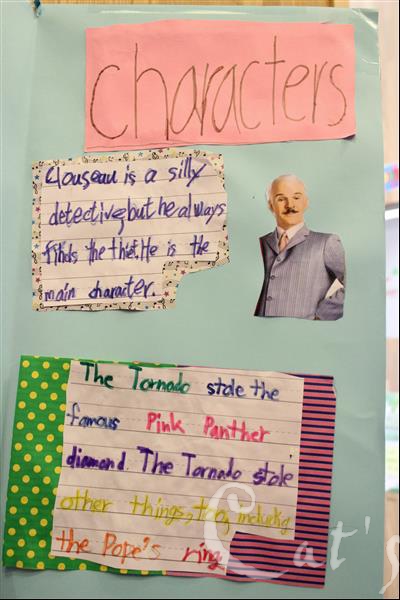 characters
Clouseau is a silly
detective, but he always
finds the thief. He is the
main character.
The Tornado stole the
famous Pink Panther
diamond. The Tornado stole
other things, too, including
the Pope's ring
Cat's